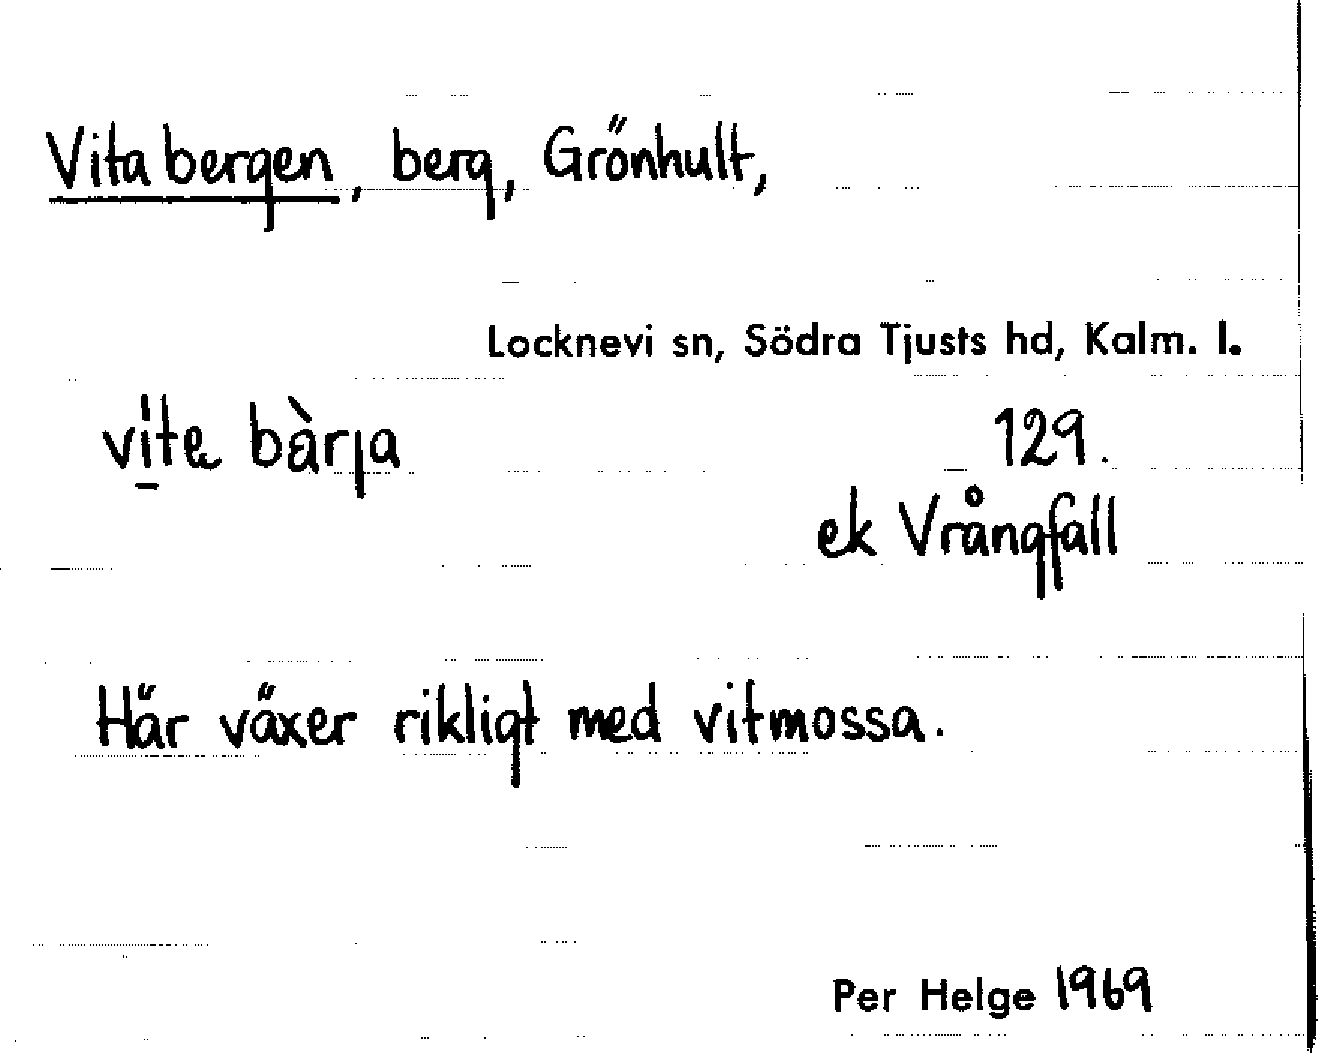 Vita bergen, berg, Grönhult,
Locknevi sn, Södra Tjusts hd, Kalm. l.
ví̱te bàrja 129.
ek Vrångfall
Här växer rikligt med vitmossa.
Per Helge 1969